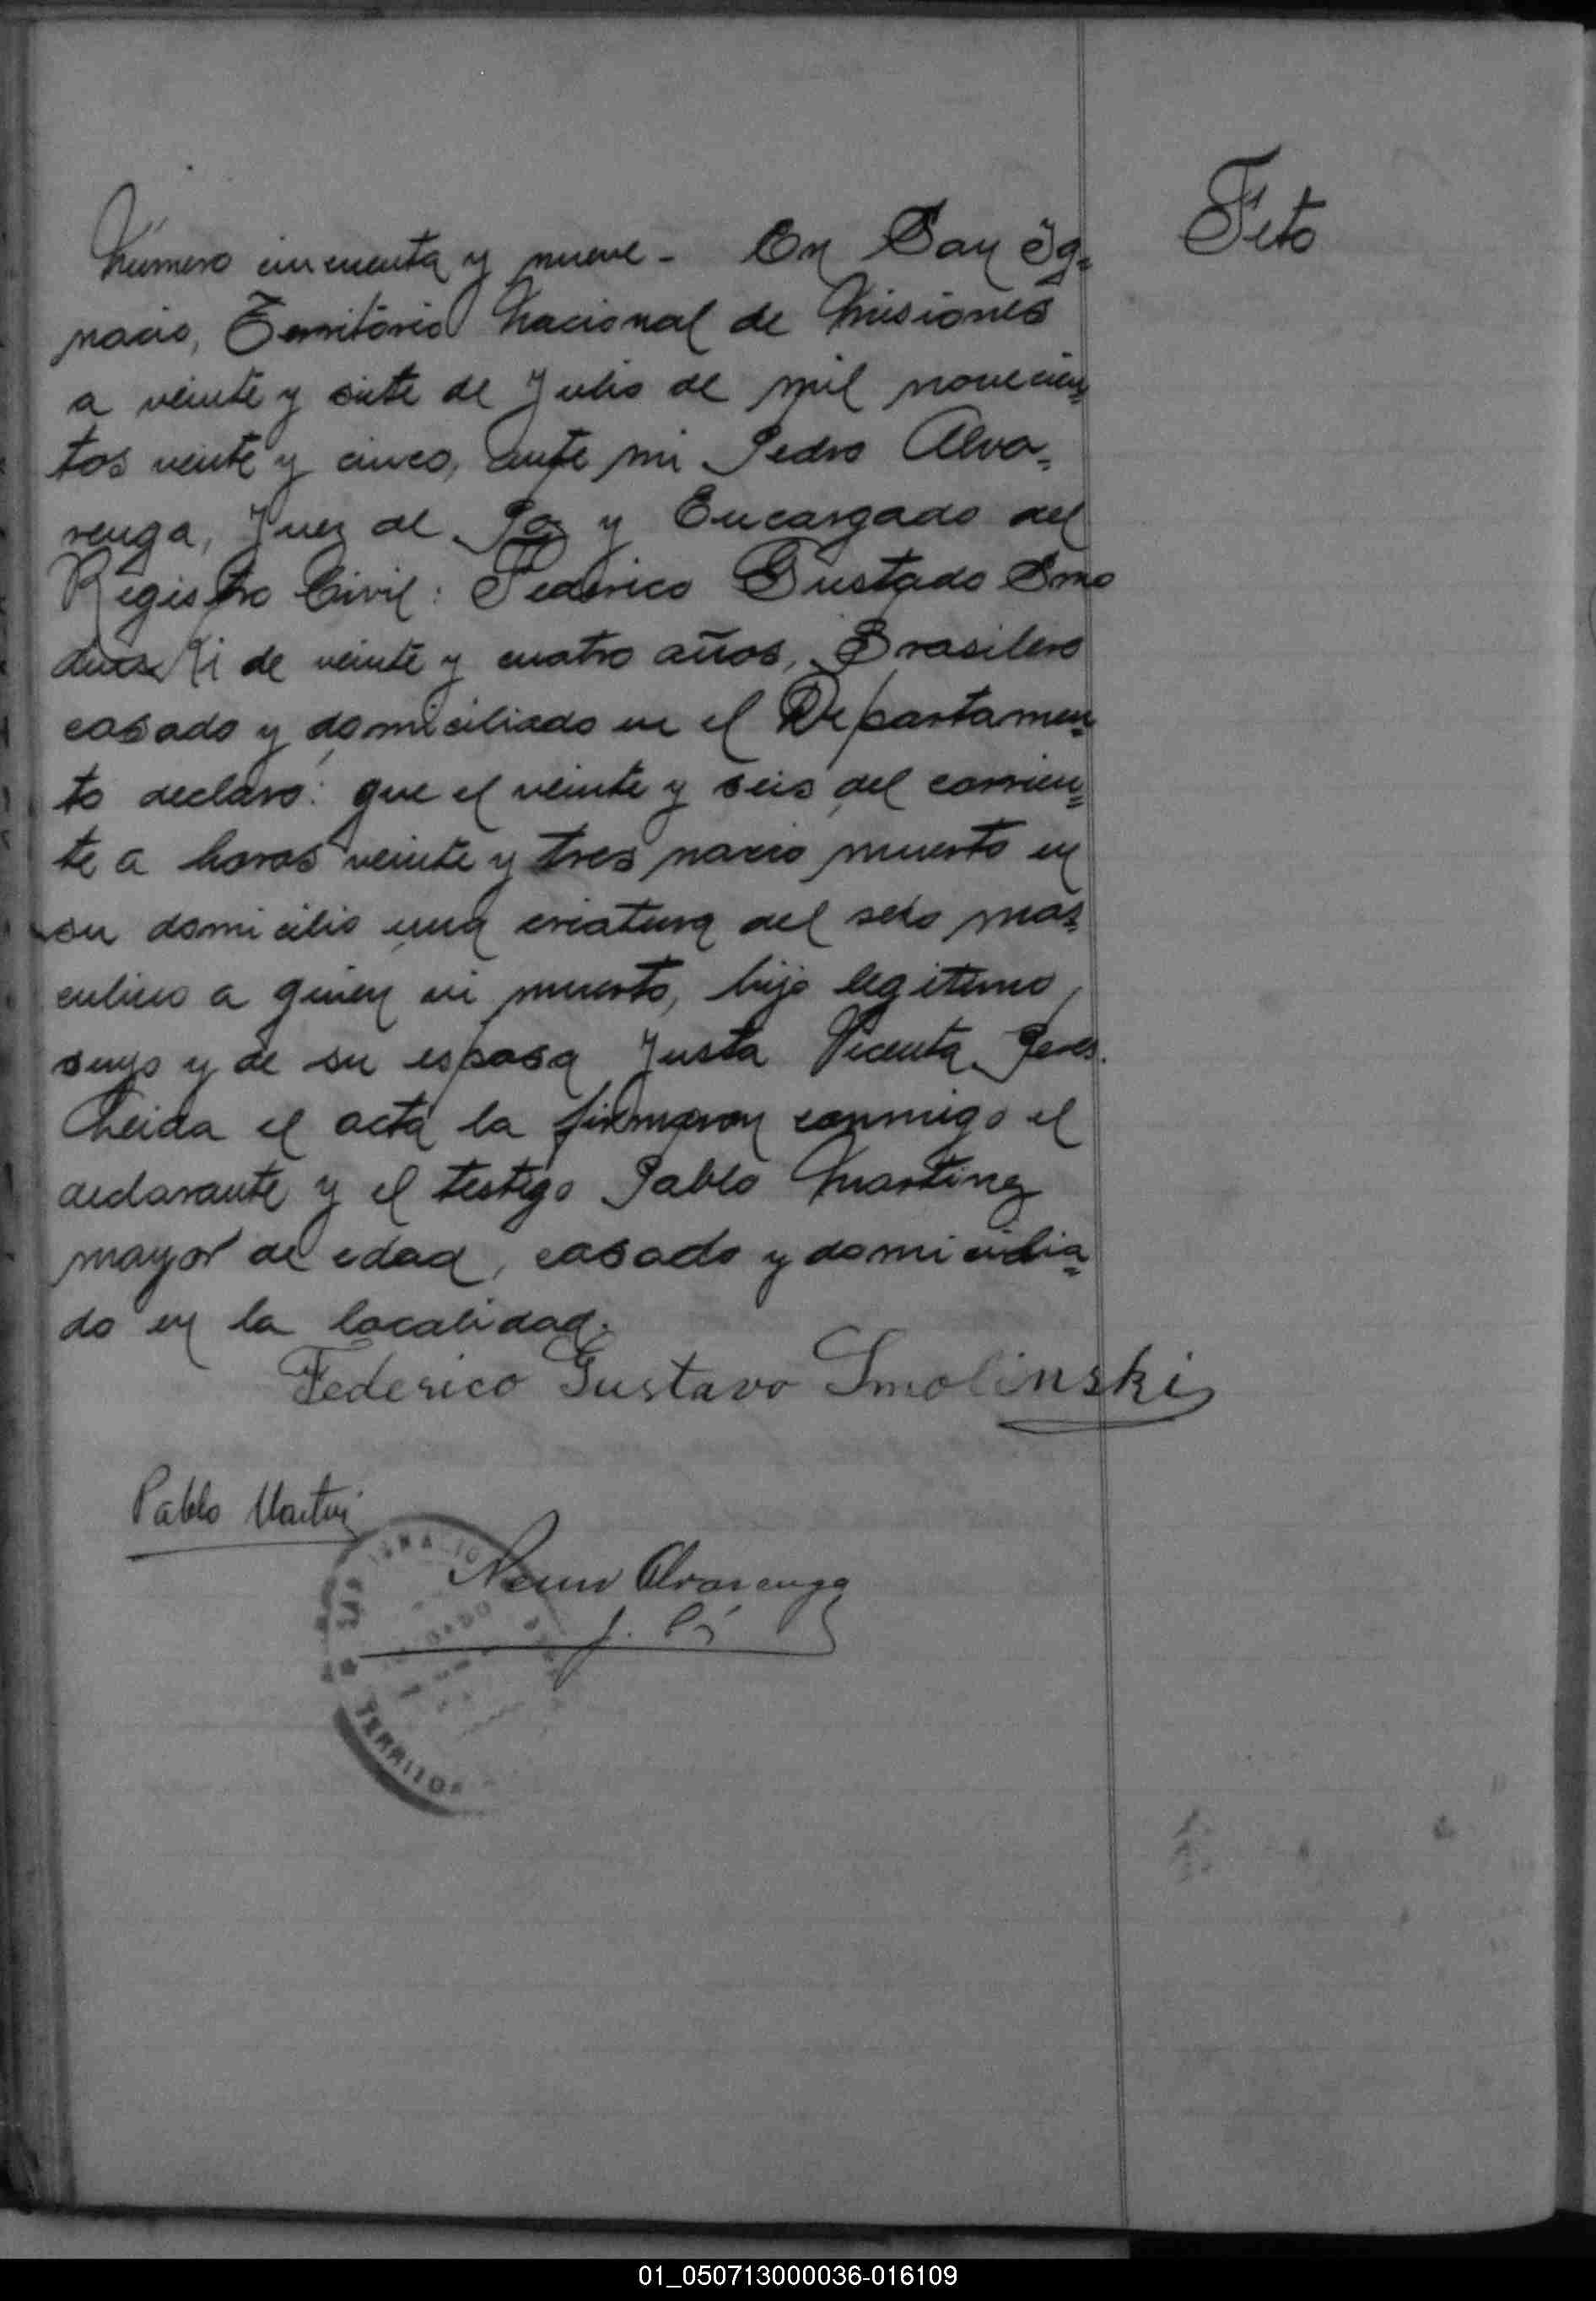 Número cincuenta y nueve - En San Ig=
nacio, Territorio Nacional de Misiones
a veinte y siete de Julio de mil novecien=
tos veinte y cinco, ante mi Pedro Alva=
renga, Juez de Paz y Encargado del
Registro Civil: Federico Gustado Smo
de veinte y cuatro años, Brasilero
casado y domiciliado en el Departamen=
to declaro: que el veinte y seis del corrien=
te a horas veinte y tres nacio muerto en
su domicilio una criatura del sexo mas=
culino a quien vi muerto, hijo legitimo
suyo y de su esposa Justa Vicenta Peres.
Leida el acta la firmaron conmigo el
declarante y el testigo Pablo Martinez
mayor de edad, casado y domicilia=
do en la localidad.
Feto
Federico Gustavo Smolinski
Pablo
Alvarenga
TERRITOR
01_050713000036-016109